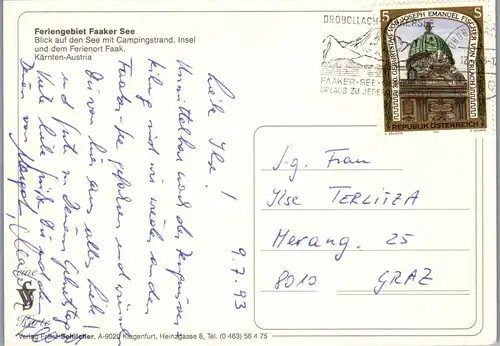 Feriengebiet Faaker See
Blick auf den See mit Campingstrand, Insel
und dem Ferienort Faak.
Kärnten-Austria
DROBOLLACH
FAAKER-SEE
URLAUB ZU JEDER
5 S
300. GEBURTSTAG VON JOSEPH EMANUEL FISCHER VON ERLACH
REPUBLIK ÖSTERREICH
9.7.93
Liebe Ilse!
Unmittelbar nach der
sind wir wieder an den
Faaker-See gefahren und wünschen
Dir von hier aus alles Liebe
und Gute zu Deinem Geburtstag!
Viele liebe Grüße
Deine
S.g. Frau
Ilse TERLITZA
Merang. 25
8010 GRAZ
Verlag Franz Schilcher, A-9020 Klagenfurt, Heinzgasse 8, Tel. (0 463) 56 4 75